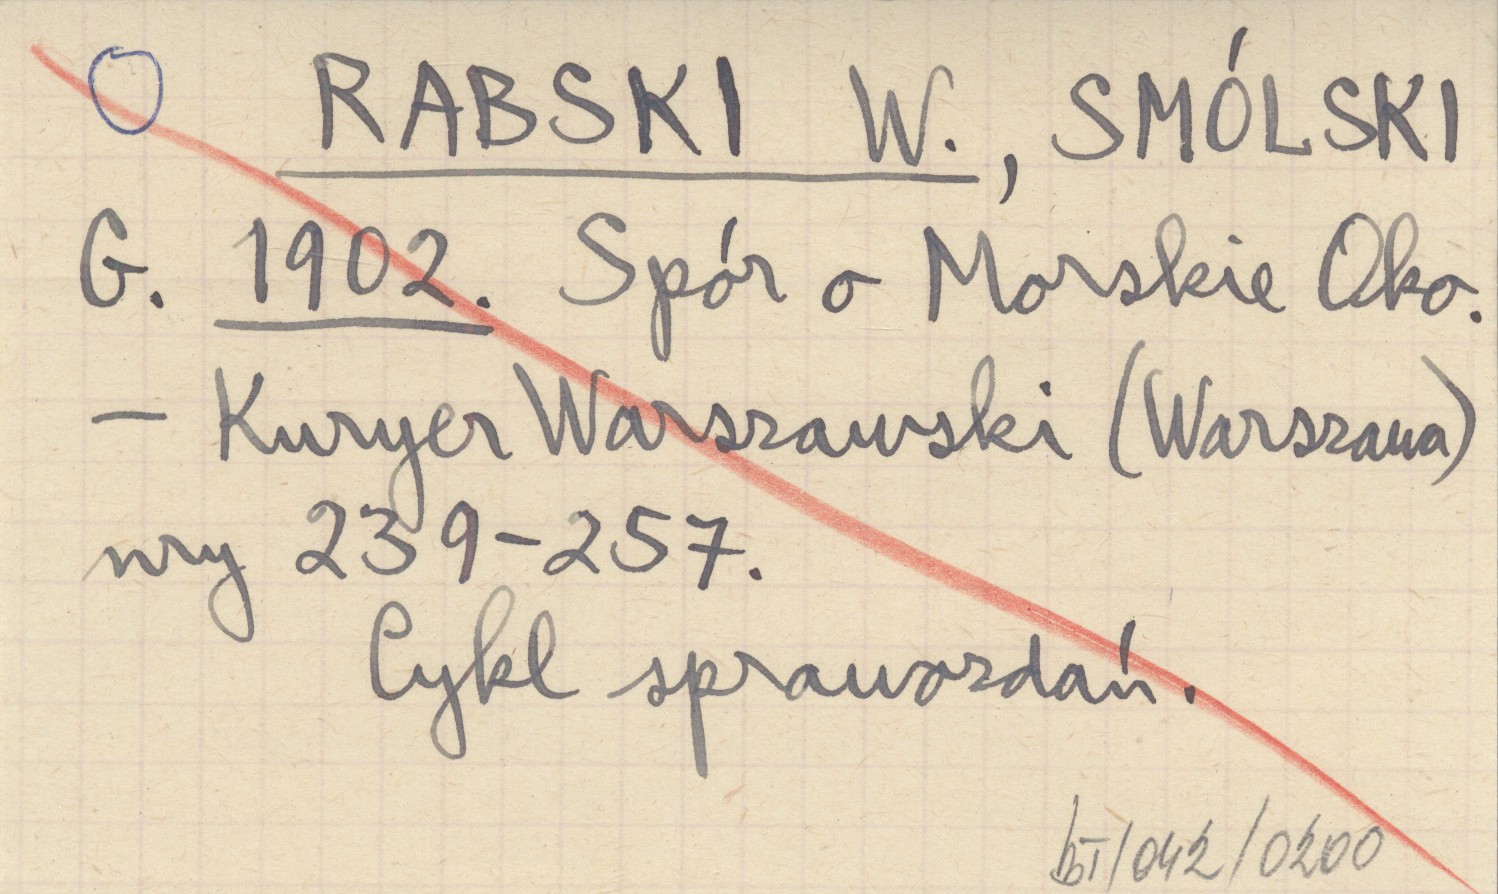 RABSKI W., SMÓLSKI
G. 1902. Spór o Morskie Oko.
– Kuryer Warszawski (Warszawa)
nry 239-257.
Cykl sprawozdań.
bT/042/0200